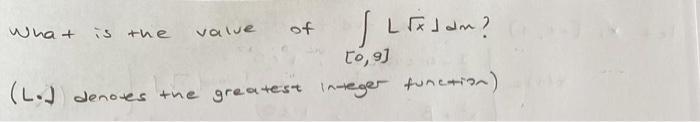 What is the value of ∫ L√x⌋dm?
[0,9]
(L.⌋ denotes the greatest integer function)